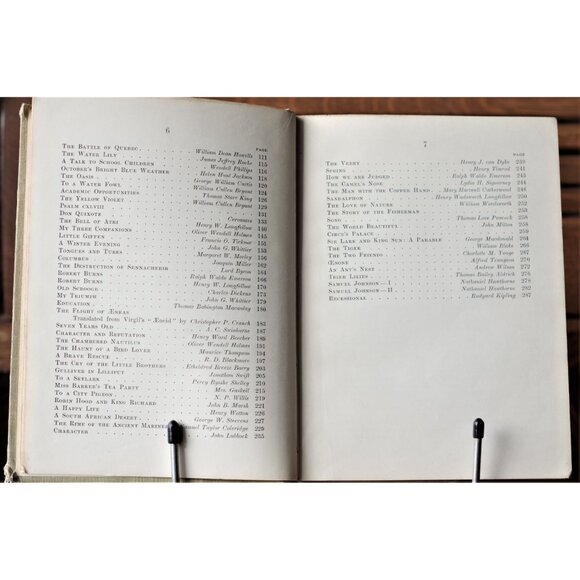 6
PAGE
THE BATTLE OF QUEBEC William Dean Howells 111
THE WATER LILY James Jeffrey Roche 115
A TALK TO SCHOOL CHILDREN Wendell Phillips 115
OCTOBER'S BRIGHT BLUE WEATHER Helen Hunt Jackson
THE OASIS George William Curtis 118
TO A WATER FOWL William Cullen Bryant 124
ACADEMIC OPPORTUNITIES Thomas Starr King
THE YELLOW VIOLET William Cullen Bryant
PSALM CXLVIII
DON QUIXOTE Cervantes
THE BELL OF ATRI Henry W. Longfellow
MY THREE COMPANIONS Oliver Wendell Holmes
LITTLE GIFFEN Francis O. Ticknor
A WINTER EVENING John G. Whittier
TONGUES AND TUBES Margaret W. Morley
COLUMBUS Joaquin Miller
THE DESTRUCTION OF SENNACHERIB Lord Byron
ROBERT BURNS Ralph Waldo Emerson
ROBERT BURNS Henry W. Longfellow
OLD SCROOGE Charles Dickens
MY TRIUMPH John G. Whittier
EDUCATION Thomas Babington Macaulay
THE FLIGHT OF ÆNEAS
Translated from Virgil's "Æneid" by Christopher P. Cranch 183
SEVEN YEARS OLD A. C. Swinburne 185
CHARACTER AND REPUTATION Henry Ward Beecher 187
THE CHAMBERED NAUTILUS Oliver Wendell Holmes
THE HAUNT OF A BIRD LOVER Maurice Thompson
A BRAVE RESCUE R. D. Blackmore
THE CRY OF THE LITTLE BROTHERS Etheldred Breeze Barry
GULLIVER IN LILLIPUT Jonathan Swift
TO A SKYLARK Percy Bysshe Shelley
MISS BARKER'S TEA PARTY Mrs. Gaskell
TO A CITY PIGEON N. P. Willis
ROBIN HOOD AND KING RICHARD John B. Marsh
A HAPPY LIFE Henry Wotton
A SOUTH AFRICAN DESERT George W. Steevens 227
THE RIME OF THE ANCIENT MARINER Samuel Taylor Coleridge 229
CHARACTER John Lubbock 235
7
PAGE
THE VEERY Henry J. van Dyke
SPRING Henry Timrod 241
HOW WE ARE JUDGED Ralph Waldo Emerson
THE CAMEL'S NOSE Lydia H. Sigourney
THE MAN WITH THE COPPER HAND Mary Hartwell Catherwood
SANDALPHON Henry Wadsworth Longfellow
THE LOVE OF NATURE William Wordsworth
THE STORY OF THE FISHERMAN
SONG Thomas Love Peacock
THE WORLD BEAUTIFUL John Milton
CIRCE'S PALACE
SIR LARK AND KING SUN: A PARABLE George Macdonald
THE TIGER William Blake
THE TWO FRIENDS Charlotte M. Yonge
ŒNONE Alfred Tennyson
AN ANT'S NEST Andrew Wilson
TIGER LILIES Thomas Bailey Aldrich
SAMUEL JOHNSON—I Nathaniel Hawthorne 278
SAMUEL JOHNSON—II Nathaniel Hawthorne 282
RECESSIONAL Rudyard Kipling 287